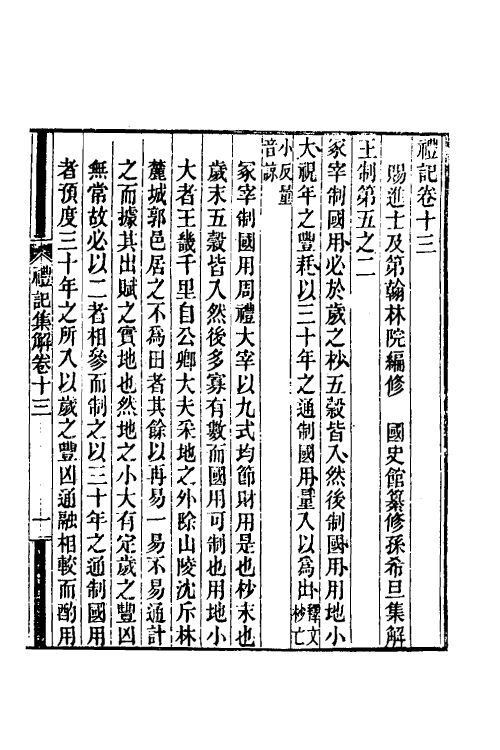 禮記卷十三
賜進士及第翰林院編修　國史館纂修孫希旦集解
王制第五之二
冢宰制國用必於歲之杪五穀皆入然後制國用用地小
大視年之豐耗以三十年之通制國用量入以爲出釋文杪亡
小反量
音諒
冢宰制國用周禮大宰以九式均節財用是也杪末也
歲末五穀皆入然後多寡有數而國用可制也用地小
大者王畿千里自公卿大夫采地之外除山陵沈斥林
麓城郭邑居之不爲田者其餘以再易一易不易通計
之而據其出賦之實地也然地之小大有定歲之豐凶
無常故必以二者相參而制之以三十年之通制國用
者預度三十年之所入以歲之豐凶通融相較而酌用
禮記集解卷十三
一